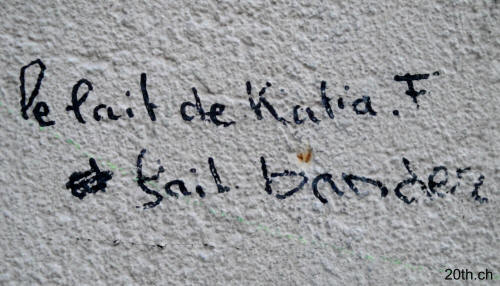 le lait de Katia.F
fait bander
20th.ch